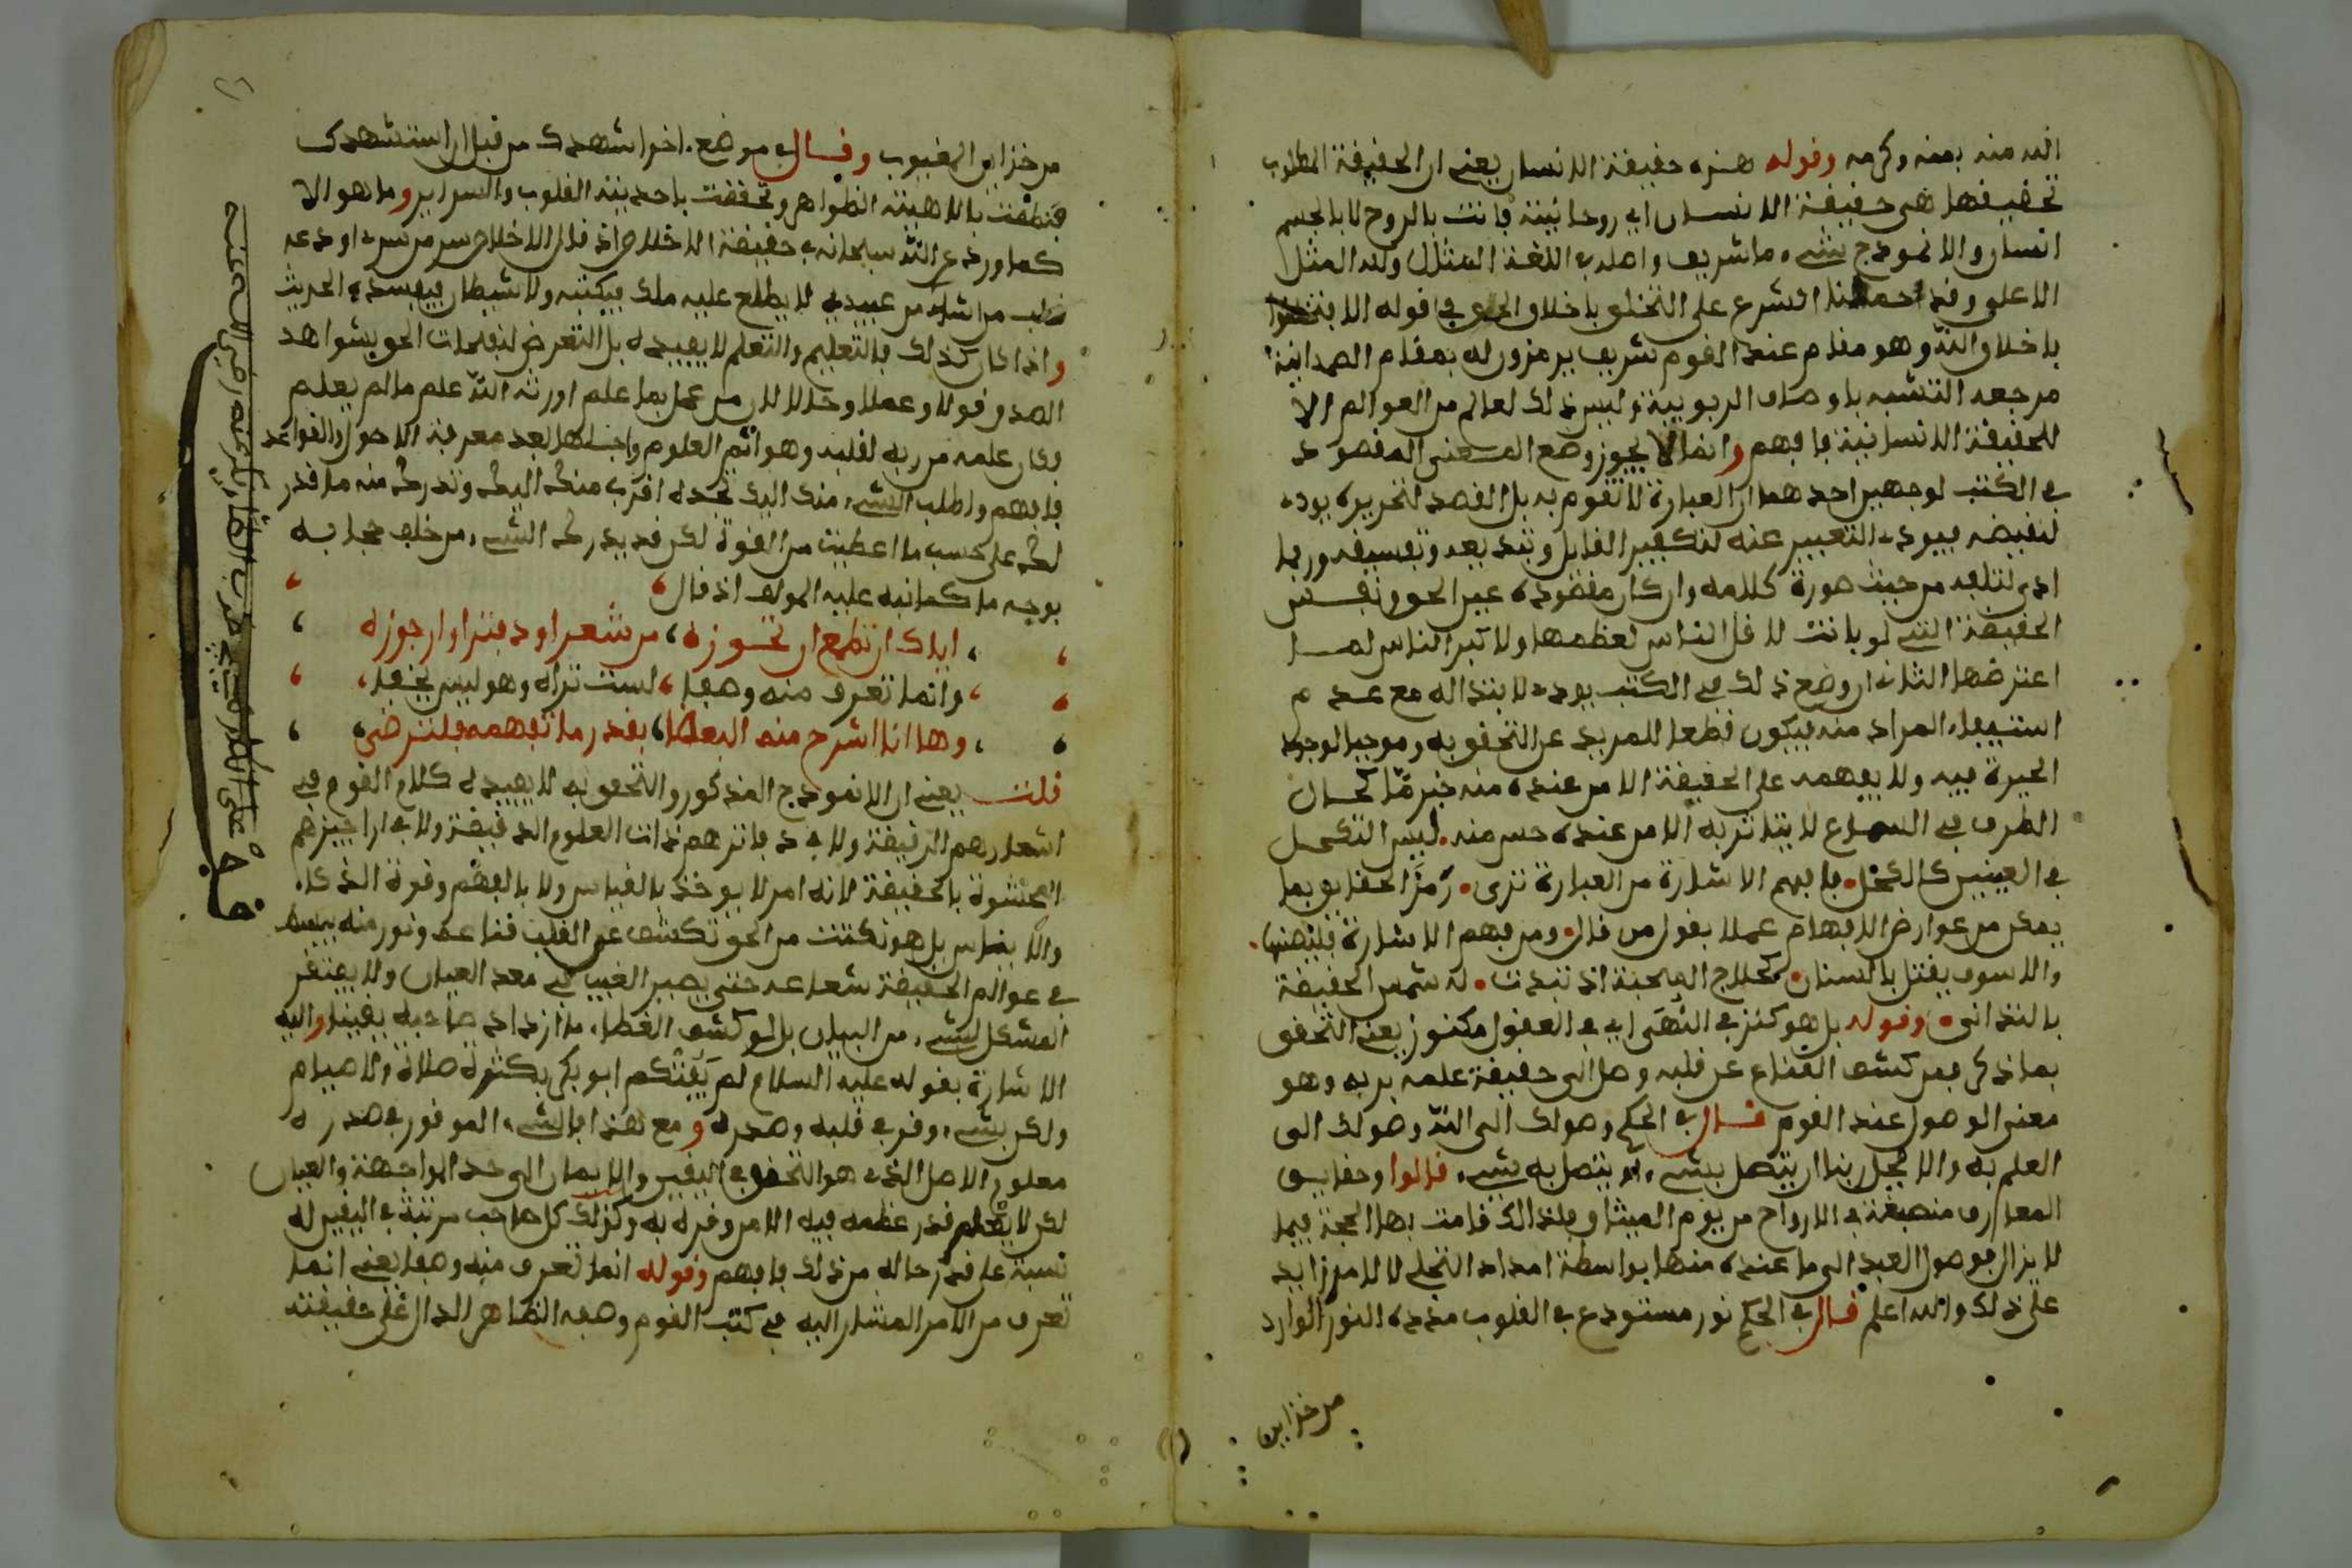 الله منه بمنه وكرمه وقوله هذه حقيقة الانسان يعني ان الحقيقة المطلوب
تحقيقها هي حقيقة الانسان اي روحانيته فانت بالروح لا بالجسم
انسان والانموذج شيء ما شريف واصله في اللغة المثل ولله المثل
الاعلى وقد احملنا الشرع على التخلق باخلاق الحق في قوله الا فتخلقوا
باخلاق الله وهو مقام عند القوم شريف يرمزون له بمقام الصمدانية
مرجعه التشبه باوصاف الربوبية وليس ذلك لعالم من العوالم الا
للحقيقة الانسانية فافهم وانما لا يجوز وضع المعنى المقصود
في الكتب لوجهين احدهما ان العبارة لا تقوم به بل القصد لتحريره يود
لنقيضه فيودي التعبير عنه لتكفير القايل وتبديعه وتفسيقه وربما
ادى لتلفه من حيث صورة كلامه وان كان مقصوده عين الحق ونفس
الحقيقة التي لو بانت لاقل الناس لعظمها ولاكبر الناس لما
اعترضها الثاني ان وضع ذلك في الكتب يودي لابتذاله مع عدم
استيفاء المراد منه فيكون قطعا للمريد عن التحقق به وموجبا لوجود
الحيرة فيه ولا يفهمه على الحقيقة الا من عنده منه خبر ما كحسان
الطرف في السماع لا يتاثر به الا من عنده حس منه ليس التكحل
في العينين كالكحل فافهم الاشارة من العبارة ترى رمز الحقايق بما
يمكن من عوارض الافهام عملا بقول من قال ومن فهم الاشارة فليصنها
والا سوف يقتل بالسنان كحلاج المحبة اذ تبدت له شمس الحقيقة
بالتداني وقوله بل هو كنز في النهى اي في العقول مكنوز يعني التحقق
بما ذكر فمن كشف القناع عن قلبه وصل الى حقيقة علمه بربه وهو
معنى الوصول عند القوم قال في الحكم وصولك الى الله وصولك الى
العلم به والا فجل ربنا ان يتصل بشيء او يتصل به شيء قالوا وحقايق
المعارف منصبغة في الارواح من يوم الميثاق ولذالك قامت بها الحجة فيما
لا يزال فوصول العبد الى ما عنده منها بواسطة امداد التجلي لا لامر زايد
على ذلك والله اعلم قال في الحكم نور مستودع في القلوب مدده النور الوارد
من خزاين
من خزاين الغيوب وقال في موضع اخر اشهدك من قبل ان استشهدك
فنطقت بالاهيته الظواهر وتحققت باحديته القلوب والسراير وما هو الا
كما ورد عن الله سبحانه في حقيقة الاخلاص اذ قال الاخلاص سر من سري اودعه
قلب من اشاء من عبيدي لا يطلع عليه ملك فيكتبه ولا شيطان فيفسده الحديث
واذا كان كذلك فالتعليم والتعلم لا يفيده بل التعرض لنفحات الحق بشواهد
الصدق قولا وعملا وحالا لان من عمل بما علم اورثه الله علم ما لم يعلم
فكان علمه من ربه لقلبه وهو اتم العلوم واجلها بعد معرفة الاصول والقواعد
فافهم واطلب الشيء منك اليك تجده اقرب منك اليك وتدرك منه ما قدر
لك على حسب ما اعطيت من القوة لكن قد يدرك الشيء من خلف حجابه
بوجه ما كما نبه عليه المولف اذ قال
اياك ان تطمع ان تحوزه من شعر او دفتر او ارجوزه
وانما تعرف منه وصفا لست تراه وهو ليس يخفا
وها انا اشرح منه البعضا بقدر ما تفهمه فلترضى
قلت يعني ان الانموذج المذكور والتحقق به لا يفيده كلام القوم في
اشعارهم الرقيقة ولا في دفاترهم ذات العلوم الدقيقة ولا في اراجيزهم
المحشوة بالحقيقة لانه امر لا يوخذ بالقياس ولا بالفهم وقوة الذكاء
والا يقاس بل هو نكتة من الحق تكشف عن القلب قناعه ونور منه يبسط
في عوالم الحقيقة شعاعه حتى يصير الغيب في معد العيان ولا يفتقر
المشكل لشيء من البيان بل لو كشف الغطاء ما ازداد صاحبه يقينا واليه
الاشارة بقوله عليه السلام لم يفتكم ابو بكر بكثرة صلاة ولا صيام
ولكن بشيء وقر في قلبه وصدره ومع هذا فالشيء الموقور في صدره
معلوم الاصل الذي هو التحقق في اليقين والايمان الى حد المواجهة والعيان
لكن لا يعلم قدر عظمه فيه الا من وقره به وكذلك كل صاحب مرتبة في اليقين له
نسبة على قدر حاله من ذلك فافهم وقوله انما تعرف منه وصفا يعني انما
تعرف من الامر المشار اليه في كتب القوم وصفه الظاهر الدال على حقيقته